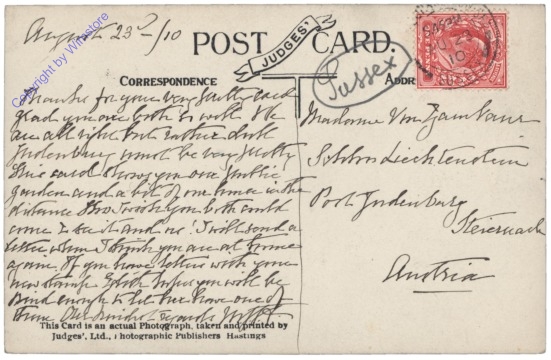 August 23rd /10
POST CARD.
JUDGES'
Sussex
CORRESPONDENCE
ADDR
Copyright by Winstore
Thanks for your very pretty card
glad you are both so well. We
are all right but rather dull
Judenburg must be very pretty
This card shows you our public
garden and a bit of our house in the
distance How I wish you both could
come to see it and us! I will send a
letter when I think you are at home
again. If you have letters with your
new stamp Edith hopes you will be
kind enough to let her have one of
them Our kindest regards
Madame Von
Schloss Liechtenstein
Post Judenburg
Steiermark
Austria
This Card is an actual Photograph, taken and printed by
Judges', Ltd., Photographic Publishers Hastings